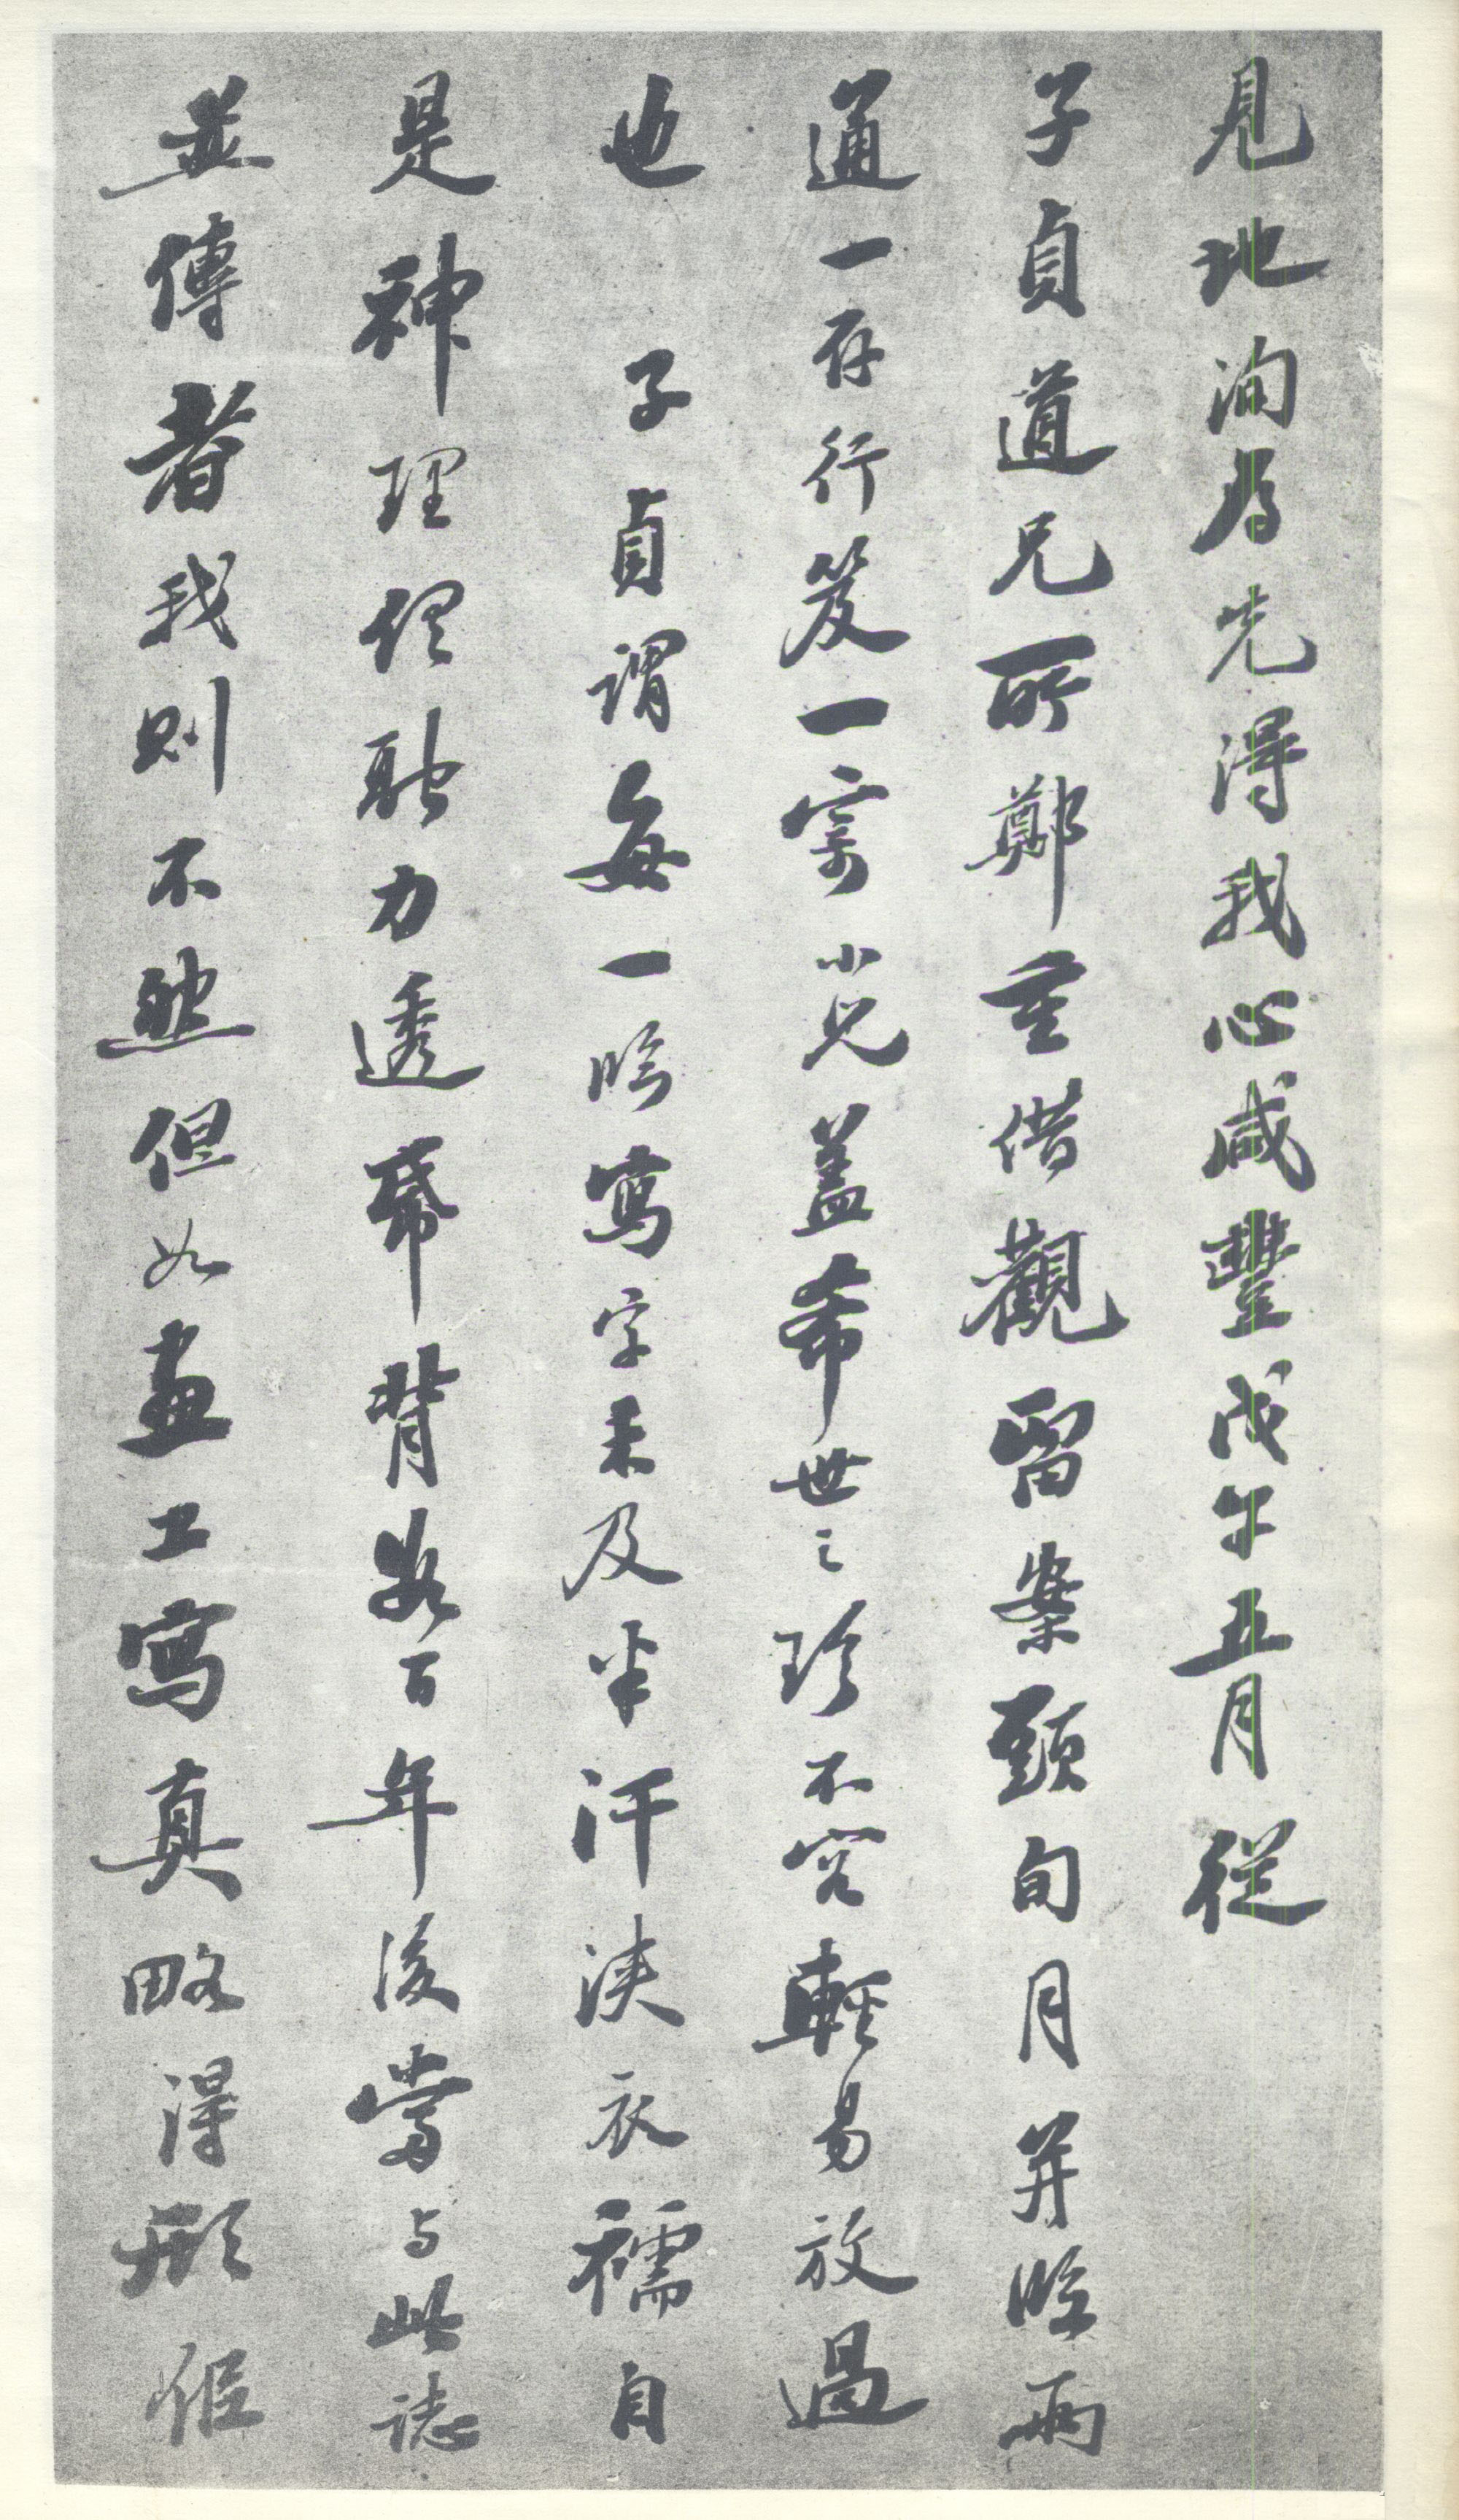 見地洵為先得我心咸豐戊午五月從
子貞道兄所鄭重借觀留案頭旬月并臨兩
通一存行笈一寄小兒蓋希世之珍不容輕易放過
也　子貞謂每一臨寫字未及半汗浹衣襦自
是神理倶融力透紙背數百年後當与此誌
並傳者我則不然但如畫工寫真略得形似